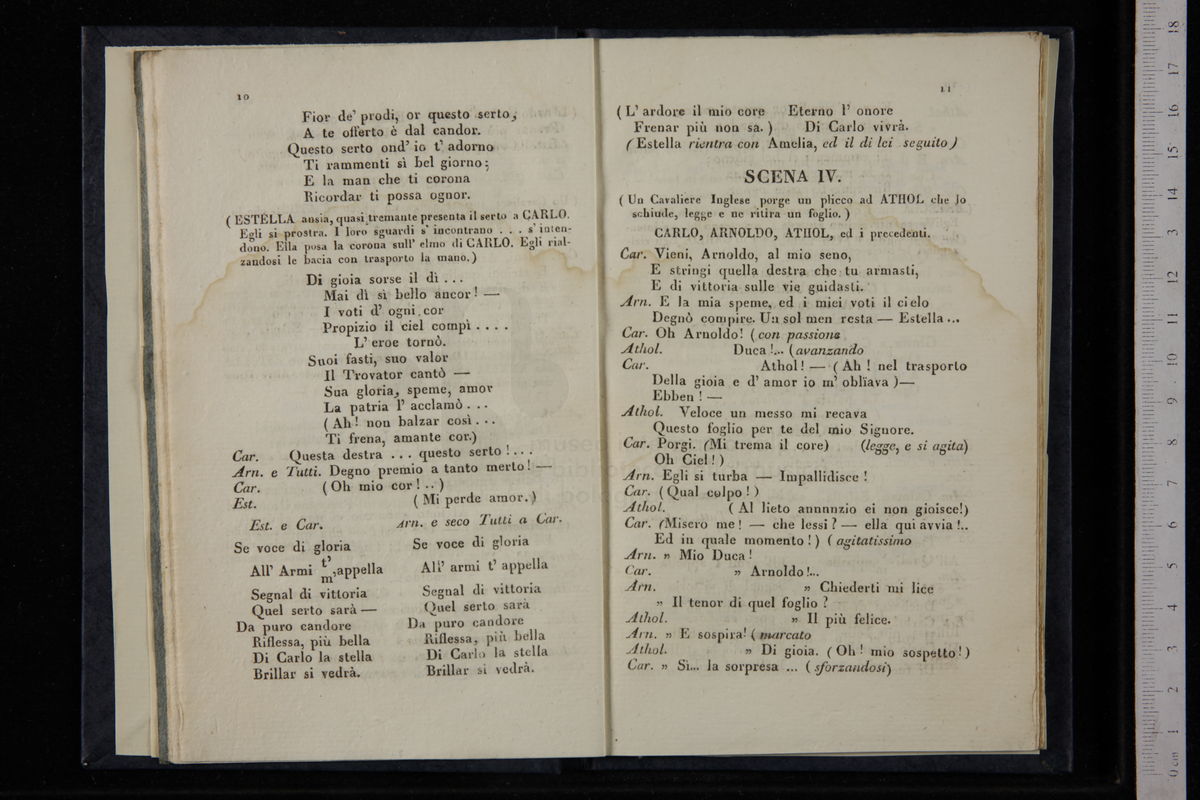 10
Fior de' prodi, or questo serto,
A te offerto è dal candor.
Questo serto ond' io t' adorno
Ti rammenti sì bel giorno;
E la man che ti corona
Ricordar ti possa ognor.
( ESTELLA ansia, quasi tremante presenta il serto a CARLO.
Egli si prostra. I loro sguardi s' incontrano . . . s' inten-
dono. Ella posa la corona sull' elmo di CARLO. Egli rial-
zandosi le bacia con trasporto la mano.)
Di gioia sorse il dì . . .
Mai dì sì bello ancor! —
I voti d' ogni cor
Propizio il ciel compì . . . .
L' eroe tornò.
Suoi fasti, suo valor
Il Trovator cantò —
Sua gloria, speme, amor
La patria l' acclamò . . .
( Ah! non balzar così . . .
Ti frena, amante cor.)
Car. Questa destra . . . questo serto ! . . .
Arn. e Tutti. Degno premio a tanto merto! —
Car. ( Oh mio cor! .. )
Est. ( Mi perde amor. )
Est. e Car.
Se voce di gloria
All' Armi t' m' appella
Segnal di vittoria
Quel serto sarà —
Da puro candore
Riflessa, più bella
Di Carlo la stella
Brillar si vedrà.
Arn. e seco Tutti a Car.
Se voce di gloria
All' armi t' appella
Segnal di vittoria
Quel serto sarà
Da puro candore
Riflessa, più bella
Di Carlo la stella
Brillar si vedrà.
11
( L' ardore il mio core Eterno l' onore
Frenar più non sa. ) Di Carlo vivrà.
( Estella rientra con Amelia, ed il di lei seguito )
SCENA IV.
( Un Cavaliere Inglese porge un plicco ad ATHOL che lo
schiude, legge e ne ritira un foglio. )
CARLO, ARNOLDO, ATHOL, ed i precedenti.
Car. Vieni, Arnoldo, al mio seno,
E stringi quella destra che tu armasti,
E di vittoria sulle vie guidasti.
Arn. E la mia speme, ed i miei voti il cielo
Degnò compire. Un sol men resta — Estella ...
Car. Oh Arnoldo! ( con passione
Athol. Duca !... ( avanzando
Car. Athol! — ( Ah ! nel trasporto
Della gioia e d' amor io m' oblïava ) —
Ebben ! —
Athol. Veloce un messo mi recava
Questo foglio per te del mio Signore.
Car. Porgi. (Mi trema il core) (legge, e si agita)
Oh Ciel! )
Arn. Egli si turba — Impallidisce !
Car. ( Qual colpo ! )
Athol. ( Al lieto annnnzio ei non gioisce!)
Car. (Misero me! — che lessi ? — ella qui avvia !..
Ed in quale momento ! ) ( agitatissimo
Arn. » Mio Duca!
Car. » Arnoldo !...
Arn. » Chiederti mi lice
» Il tenor di quel foglio ?
Athol. » Il più felice.
Arn. » E sospira! ( marcato
Athol. » Di gioia. ( Oh! mio sospetto!)
Car. » Sì... la sorpresa ... ( sforzandosi)
0 cm 1 2 3 4 5 6 7 8 9 10 11 12 13 14 15 16 17 18